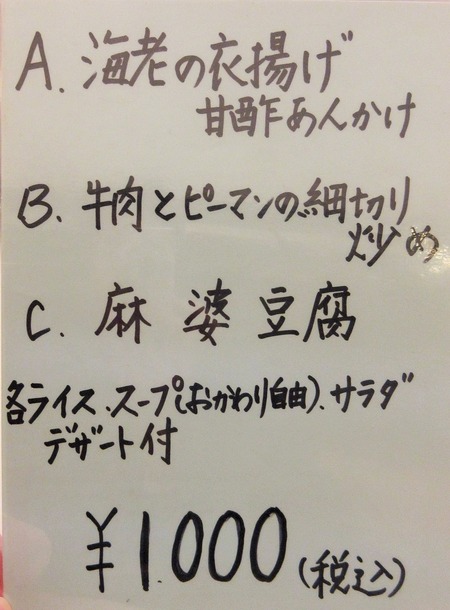 A. 海老の衣揚げ
甘酢あんかけ
B. 牛肉とピーマンの細切り
炒め
C. 麻婆豆腐
各ライス、スープ(おかわり自由)、サラダ
デザート付
¥1.000(税込)